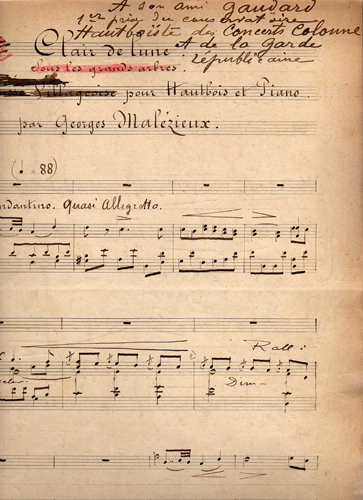 A son ami Gaudard
1er prix du conservatoire
Hautboïste des Concerts Colonne
et de la Garde
républicaine
Clair de lune
Sous les grands arbres.
Villageoise pour Hautbois et Piano.
par Georges Malézieux.
(♩. = 88)
Andantino. Quasi Allegretto.
Rall :
Dim -